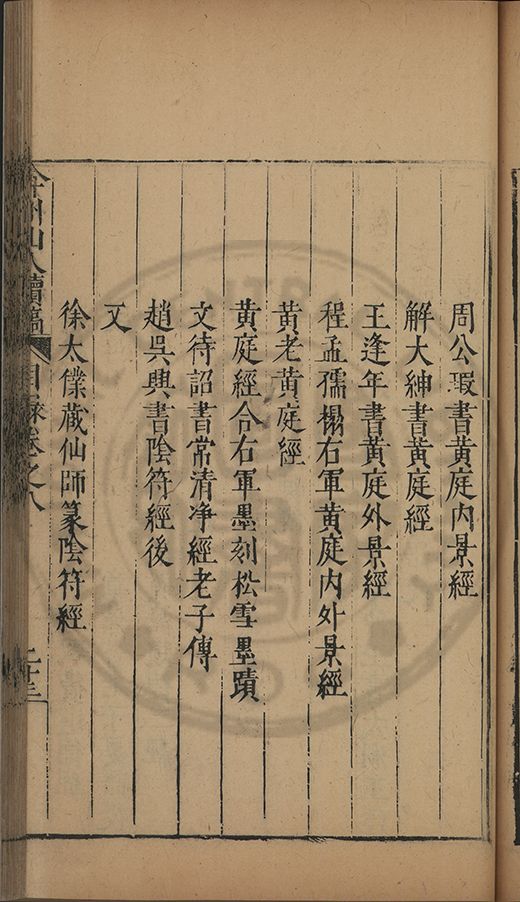 周公瑕書黃庭內景經
解大紳書黃庭經
王逢年書黃庭外景經
程孟孺搨右軍黃庭內外景經
黃老黃庭經
黃庭經合右軍墨刻松雪墨蹟
文待詔書常清净經老子傳
趙吳興書陰符經後
又
徐太僕藏仙師篆陰符經
弇州山人續稿 目錄卷之八 二十三